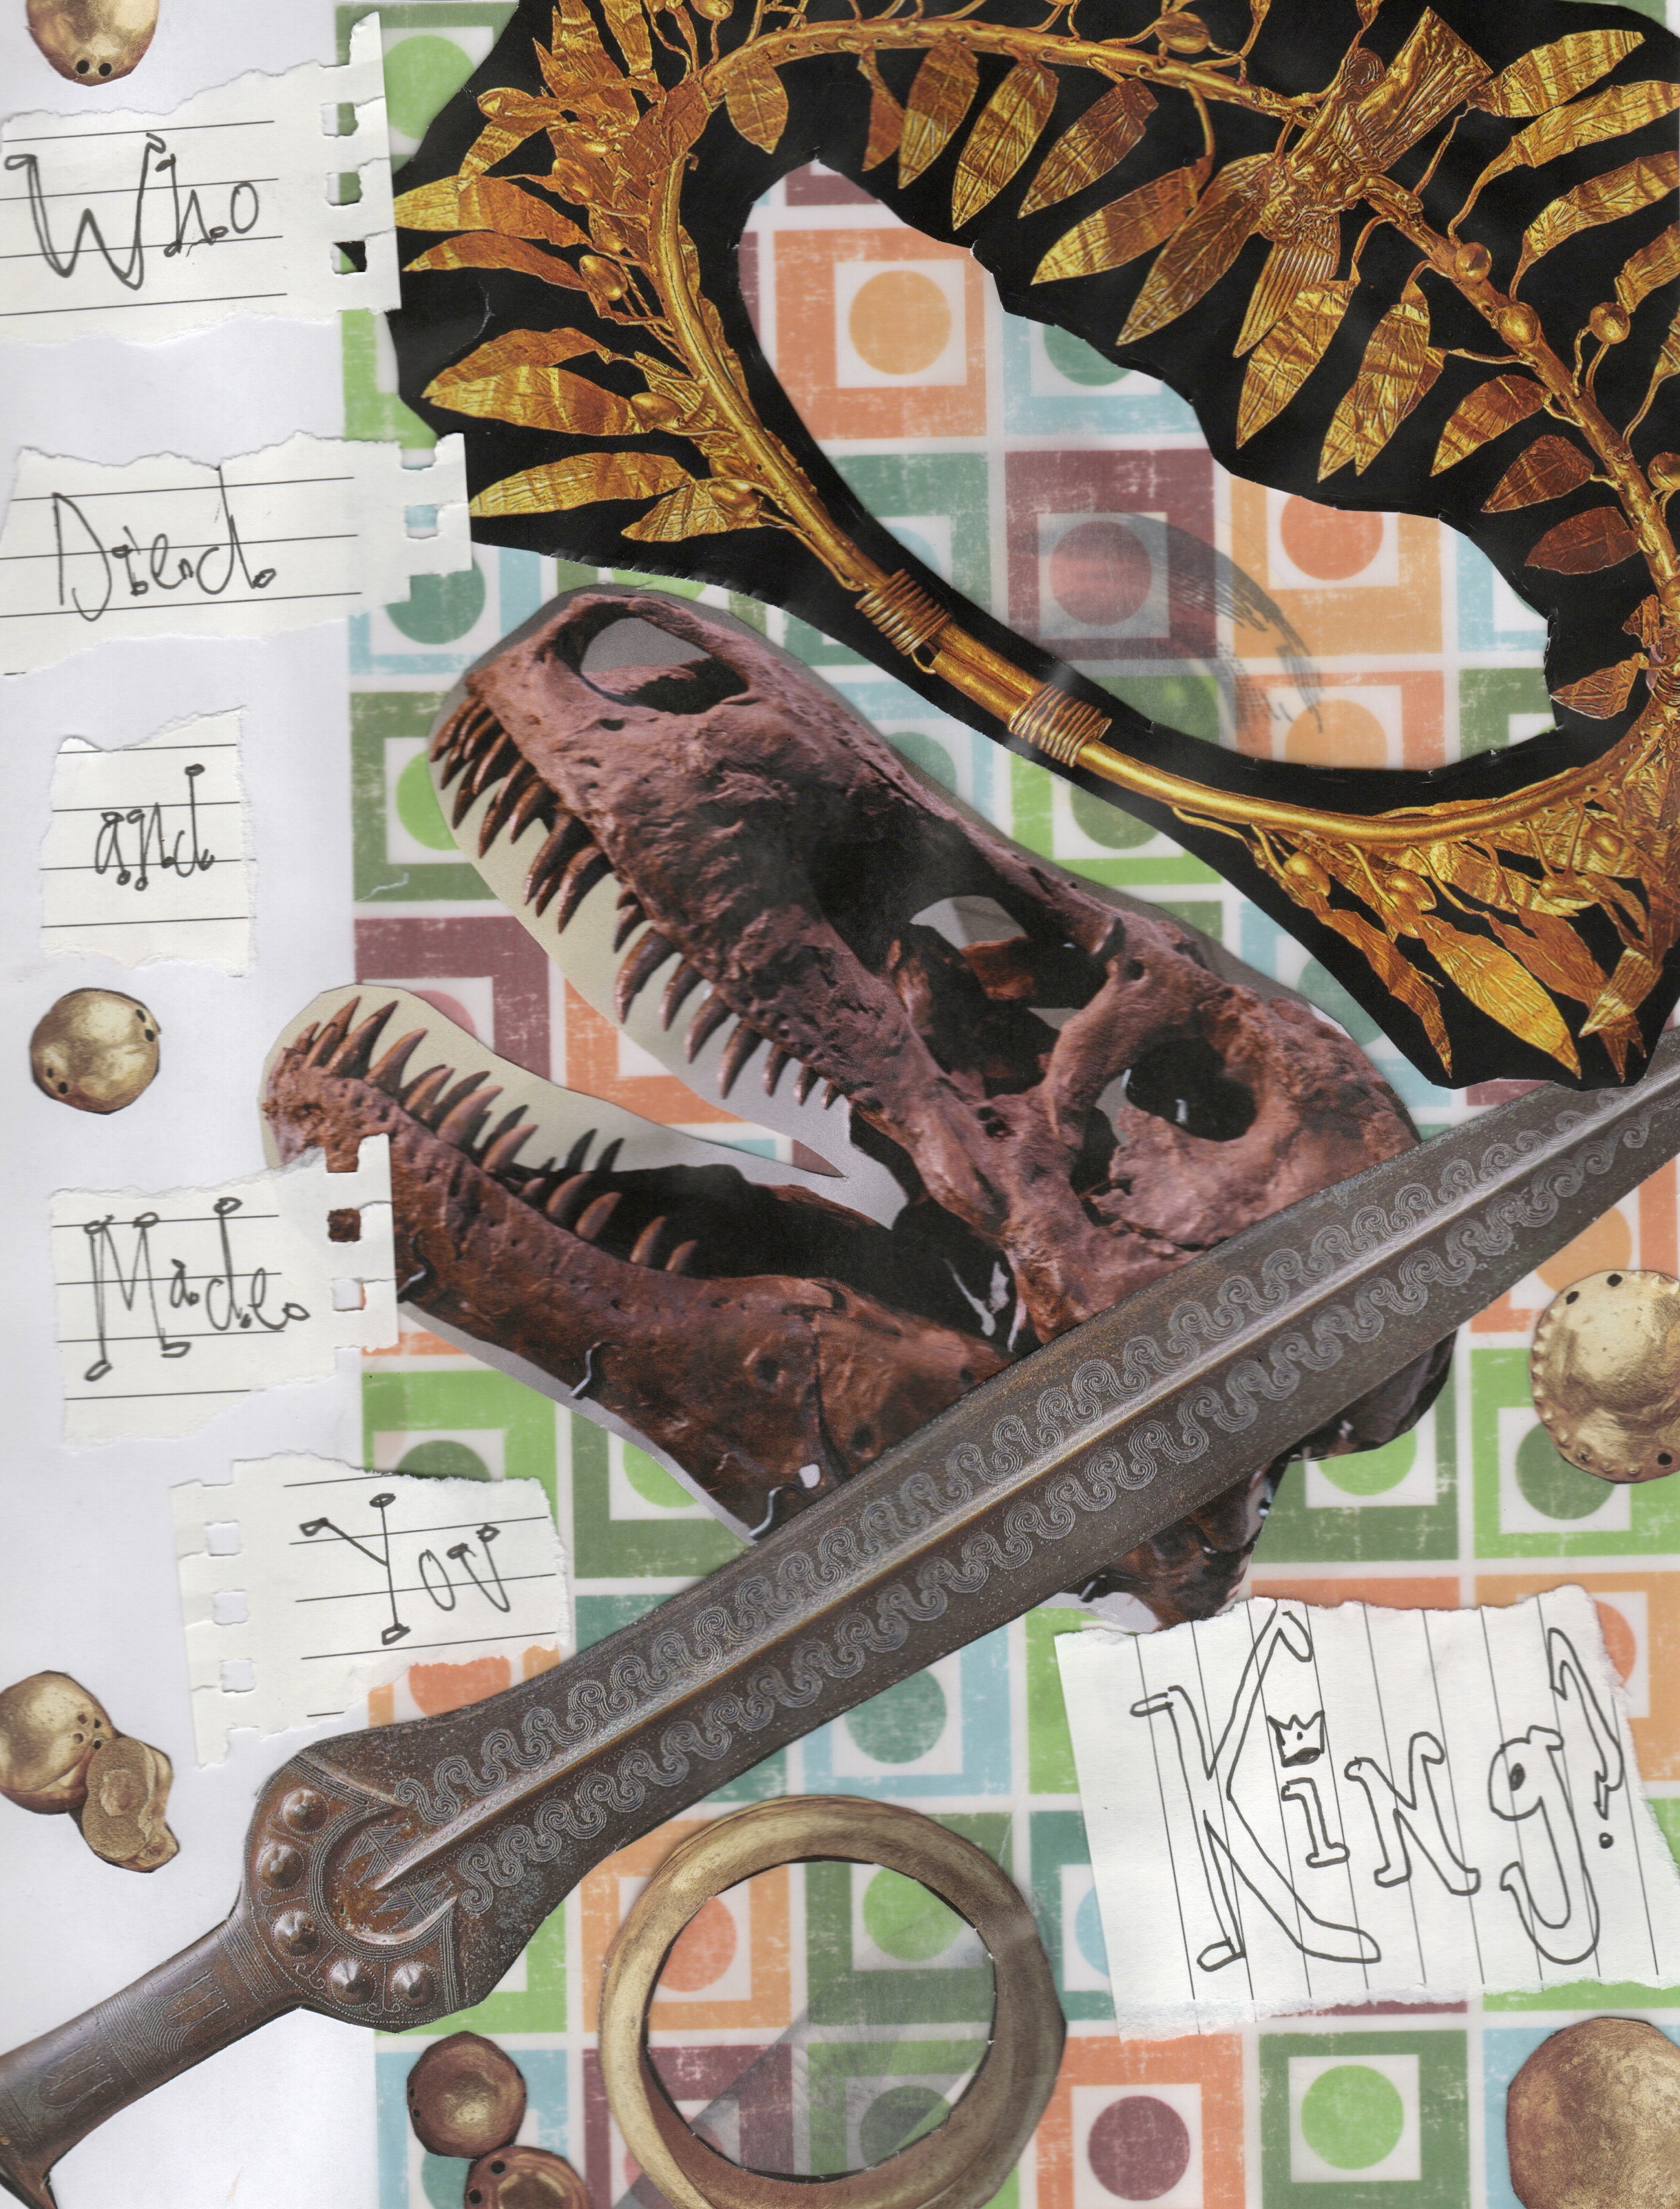 Who
Died
and
Made
You
King?